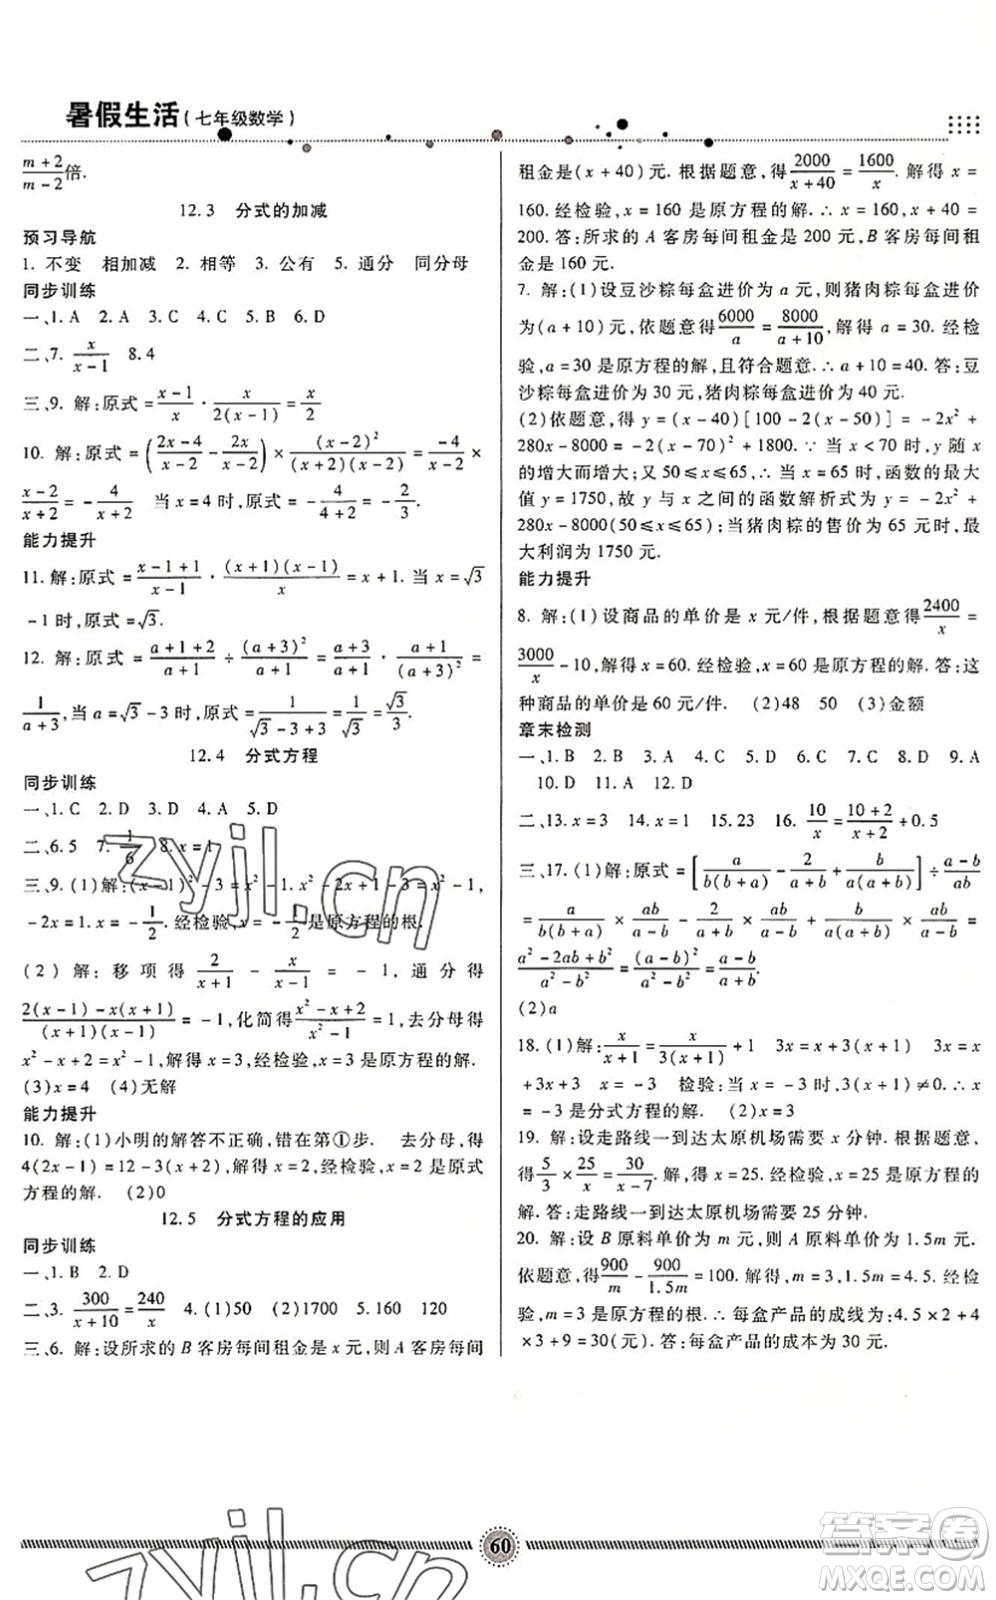 暑假生活(七年级数学)
$\frac{m+2}{m-2}$倍.
12.3 分式的加减
预习导航
1. 不变 相加减 2. 相等 3. 公有 5. 通分 同分母
同步训练
一、1. A 2. A 3. C 4. C 5. B 6. D
二、7. $\frac{x}{x-1}$ 8. 4
三、9. 解:原式=$\frac{x-1}{x}\cdot\frac{x}{2(x-1)}=\frac{x}{2}$
10. 解:原式=$\left(\frac{2x-4}{x-2}-\frac{2x}{x-2}\right)\times\frac{(x-2)^2}{(x+2)(x-2)}=\frac{-4}{x-2}\times$
$\frac{x-2}{x+2}=-\frac{4}{x+2}$ 当 x=4 时,原式=$-\frac{4}{4+2}=-\frac{2}{3}$.
能力提升
11. 解:原式=$\frac{x-1+1}{x-1}\cdot\frac{(x+1)(x-1)}{x}$=x+1. 当 x=$\sqrt{3}$
-1 时,原式=$\sqrt{3}$.
12. 解:原式=$\frac{a+1+2}{a+1}\div\frac{(a+3)^2}{a+1}=\frac{a+3}{a+1}\cdot\frac{a+1}{(a+3)^2}$=
$\frac{1}{a+3}$,当 a=$\sqrt{3}$-3 时,原式=$\frac{1}{\sqrt{3}-3+3}=\frac{1}{\sqrt{3}}=\frac{\sqrt{3}}{3}$.
12.4 分式方程
同步训练
一、1. C 2. D 3. D 4. A 5. D
二、6. 5 7. $-\frac{1}{6}$ 8. x=1
三、9. (1)解:$(x-1)^2-3=x^2-1. x^2-2x+1-3=x^2-1$,
-2x=1,x=$-\frac{1}{2}$. 经检验,x=$-\frac{1}{2}$是原方程的根.
(2) 解: 移项得 $\frac{2}{x+1}-\frac{x}{x-1}=-1$, 通分得
$\frac{2(x-1)-x(x+1)}{(x+1)(x-1)}=-1$,化简得$\frac{x^2-x+2}{x^2-1}=1$,去分母得
$x^2-x+2=x^2-1$,解得 x=3,经检验,x=3 是原方程的解.
(3)x=4 (4)无解
能力提升
10. 解:(1)小明的解答不正确,错在第①步. 去分母,得
4(2x-1)=12-3(x+2),解得 x=1,经检验,x=1 是原式
方程的解. (2)0
12.5 分式方程的应用
同步训练
一、1. B 2. D
二、3. $\frac{300}{x+10}=\frac{240}{x}$ 4. (1)50 (2)1700 5. 160 120
三、6. 解:设所求的 B 客房每间租金是 x 元,则 A 客房每间
租金是(x+40)元. 根据题意,得$\frac{2000}{x+40}=\frac{1600}{x}$. 解得 x=
160. 经检验,x=160 是原方程的解. ∴x=160,x+40=
200. 答:所求的 A 客房每间租金是 200 元,B 客房每间租
金是 160 元.
7. 解:(1)设豆沙粽每盒进价为 a 元,则猪肉粽每盒进价
为(a+10)元,依题意得$\frac{6000}{a}=\frac{8000}{a+10}$,解得 a=30. 经检
验,a=30 是原方程的解,且符合题意. ∴a+10=40. 答:豆
沙粽每盒进价为 30 元,猪肉粽每盒进价为 40 元.
(2)依题意,得 y=(x-40)[100-2(x-50)]=$-2x^2$+
280x-8000=$-2(x-70)^2$+1800. ∵当 x<70 时,y 随 x
的增大而增大;又 50≤x≤65,∴当 x=65 时,函数的最大
值 y=1750,故 y 与 x 之间的函数解析式为 y=$-2x^2$+
280x-8000(50≤x≤65);当猪肉粽的售价为 65 元时,最
大利润为 1750 元.
能力提升
8. 解:(1)设商品的单价是 x 元/件,根据题意得$\frac{2400}{x}$=
$\frac{3000}{x}$-10,解得 x=60. 经检验,x=60 是原方程的解. 答:这
种商品的单价是 60 元/件. (2)48 50 (3)金额
章末检测
一、1. B 2. B 3. C 4. C 5. A 6. B 7. B 8. D 9. A
10. D 11. A 12. D
二、13. x=3 14. x=1 15. 23 16. $\frac{10}{x}=\frac{10+2}{x+2}$+0.5
三、17. (1)解:原式=$\left[\frac{a}{b(b+a)}-\frac{2}{a+b}+\frac{b}{a(a+b)}\right]\div\frac{a-b}{ab}$
=$\frac{a}{b(b+a)}\times\frac{ab}{a-b}-\frac{2}{a+b}\times\frac{ab}{a-b}+\frac{b}{a(a+b)}\times\frac{ab}{a-b}$=
$\frac{a^2-2ab+b^2}{a^2-b^2}=\frac{(a-b)^2}{a^2-b^2}=\frac{a-b}{a+b}$.
(2)a
18. (1)解:$\frac{x}{x+1}=\frac{x}{3(x+1)}+1$ 3x=x+3(x+1) 3x=x
+3x+3 x=-3 检验:当 x=-3 时,3(x+1)≠0. ∴x
=-3 是分式方程的解. (2)x=3
19. 解:设走路线一到达太原机场需要 x 分钟. 根据题意,
得$\frac{5}{3}\times\frac{25}{x}=\frac{30}{x-7}$. 解,得 x=25. 经检验,x=25 是原方程的
解. 答:走路线一到达太原机场需要 25 分钟.
20. 解:设 B 原料单价为 m 元,则 A 原料单价为 1.5m 元.
依题意,得$\frac{900}{m}-\frac{900}{1.5m}$=100. 解得,m=3,1.5m=4.5. 经检
验,m=3 是原方程的根. ∴每盒产品的成线为:4.5×2+4
×3+9=30(元). 答:每盒产品的成本为 30 元.
zyjl.cn
zyjl.cn
60
答案圈
MXQE.COM